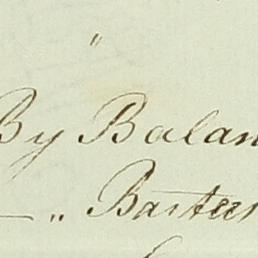 "
By Balan
— " Bartee